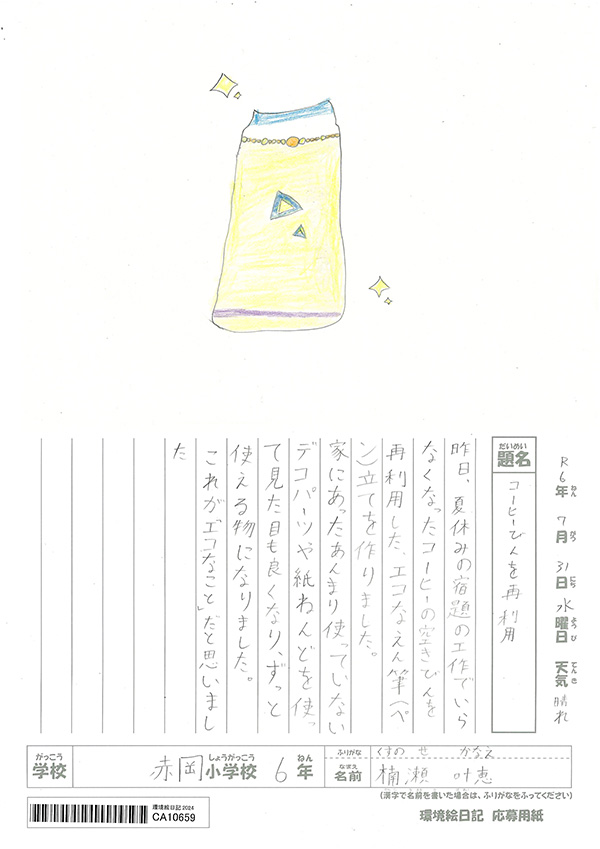 R6年 7月 31日 水曜日 天気 晴れ
ねん がつ にち ようび てんき
だいめい
題名
コーヒーびんを再利用
昨日、夏休みの宿題の工作でいら
なくなったコーヒーの空きびんを
再利用した、エコなえん筆(ペ
ン)立てを作りました。
家にあったあんまり使っていない
デコパーツや紙ねんどを使っ
て見た目も良くなり、ずっと
使える物になりました。
これが「エコなこと」だと思いまし
た
がっこう
学校
赤岡小学校 6年
しょうがっこう ねん
ふりがな くすのせ かなえ
なまえ
名前 楠瀬 叶恵
(漢字で名前を書いた場合は、ふりがなをふってください)
環境絵日記2024
CA10659
環境絵日記 応募用紙